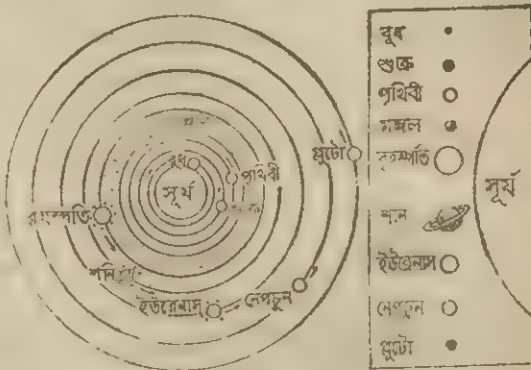 বুধ
সূর্য
পৃথিবী
প্লুটো
বৃহস্পতি
শনি
ইউরেনাস
নেপচুন
বুধ
শুক্র
পৃথিবী
মঙ্গল
বৃহস্পতি
সূর্য
শনি
ইউরেনাস
নেপচুন
প্লুটো